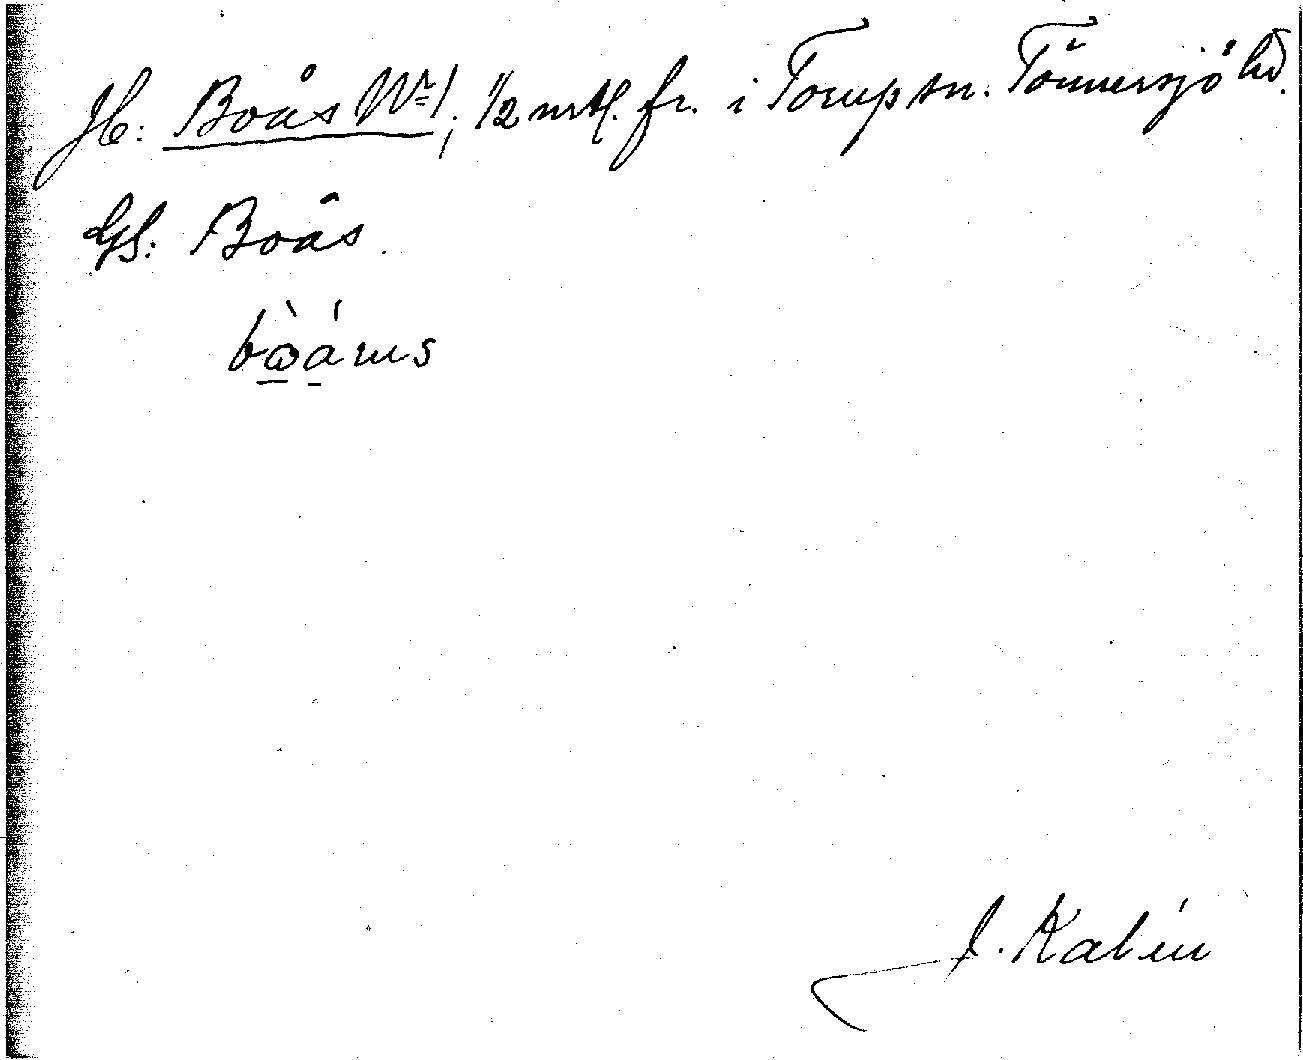 Jb: Boås Nr 1, 1/2 mtl. fr. i Torup sn. Tönnersjö hd.
Gs: Boås.
J. Kalén